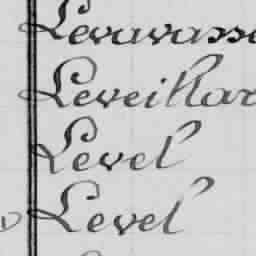 Levavasse
Leveillar
Level
Level